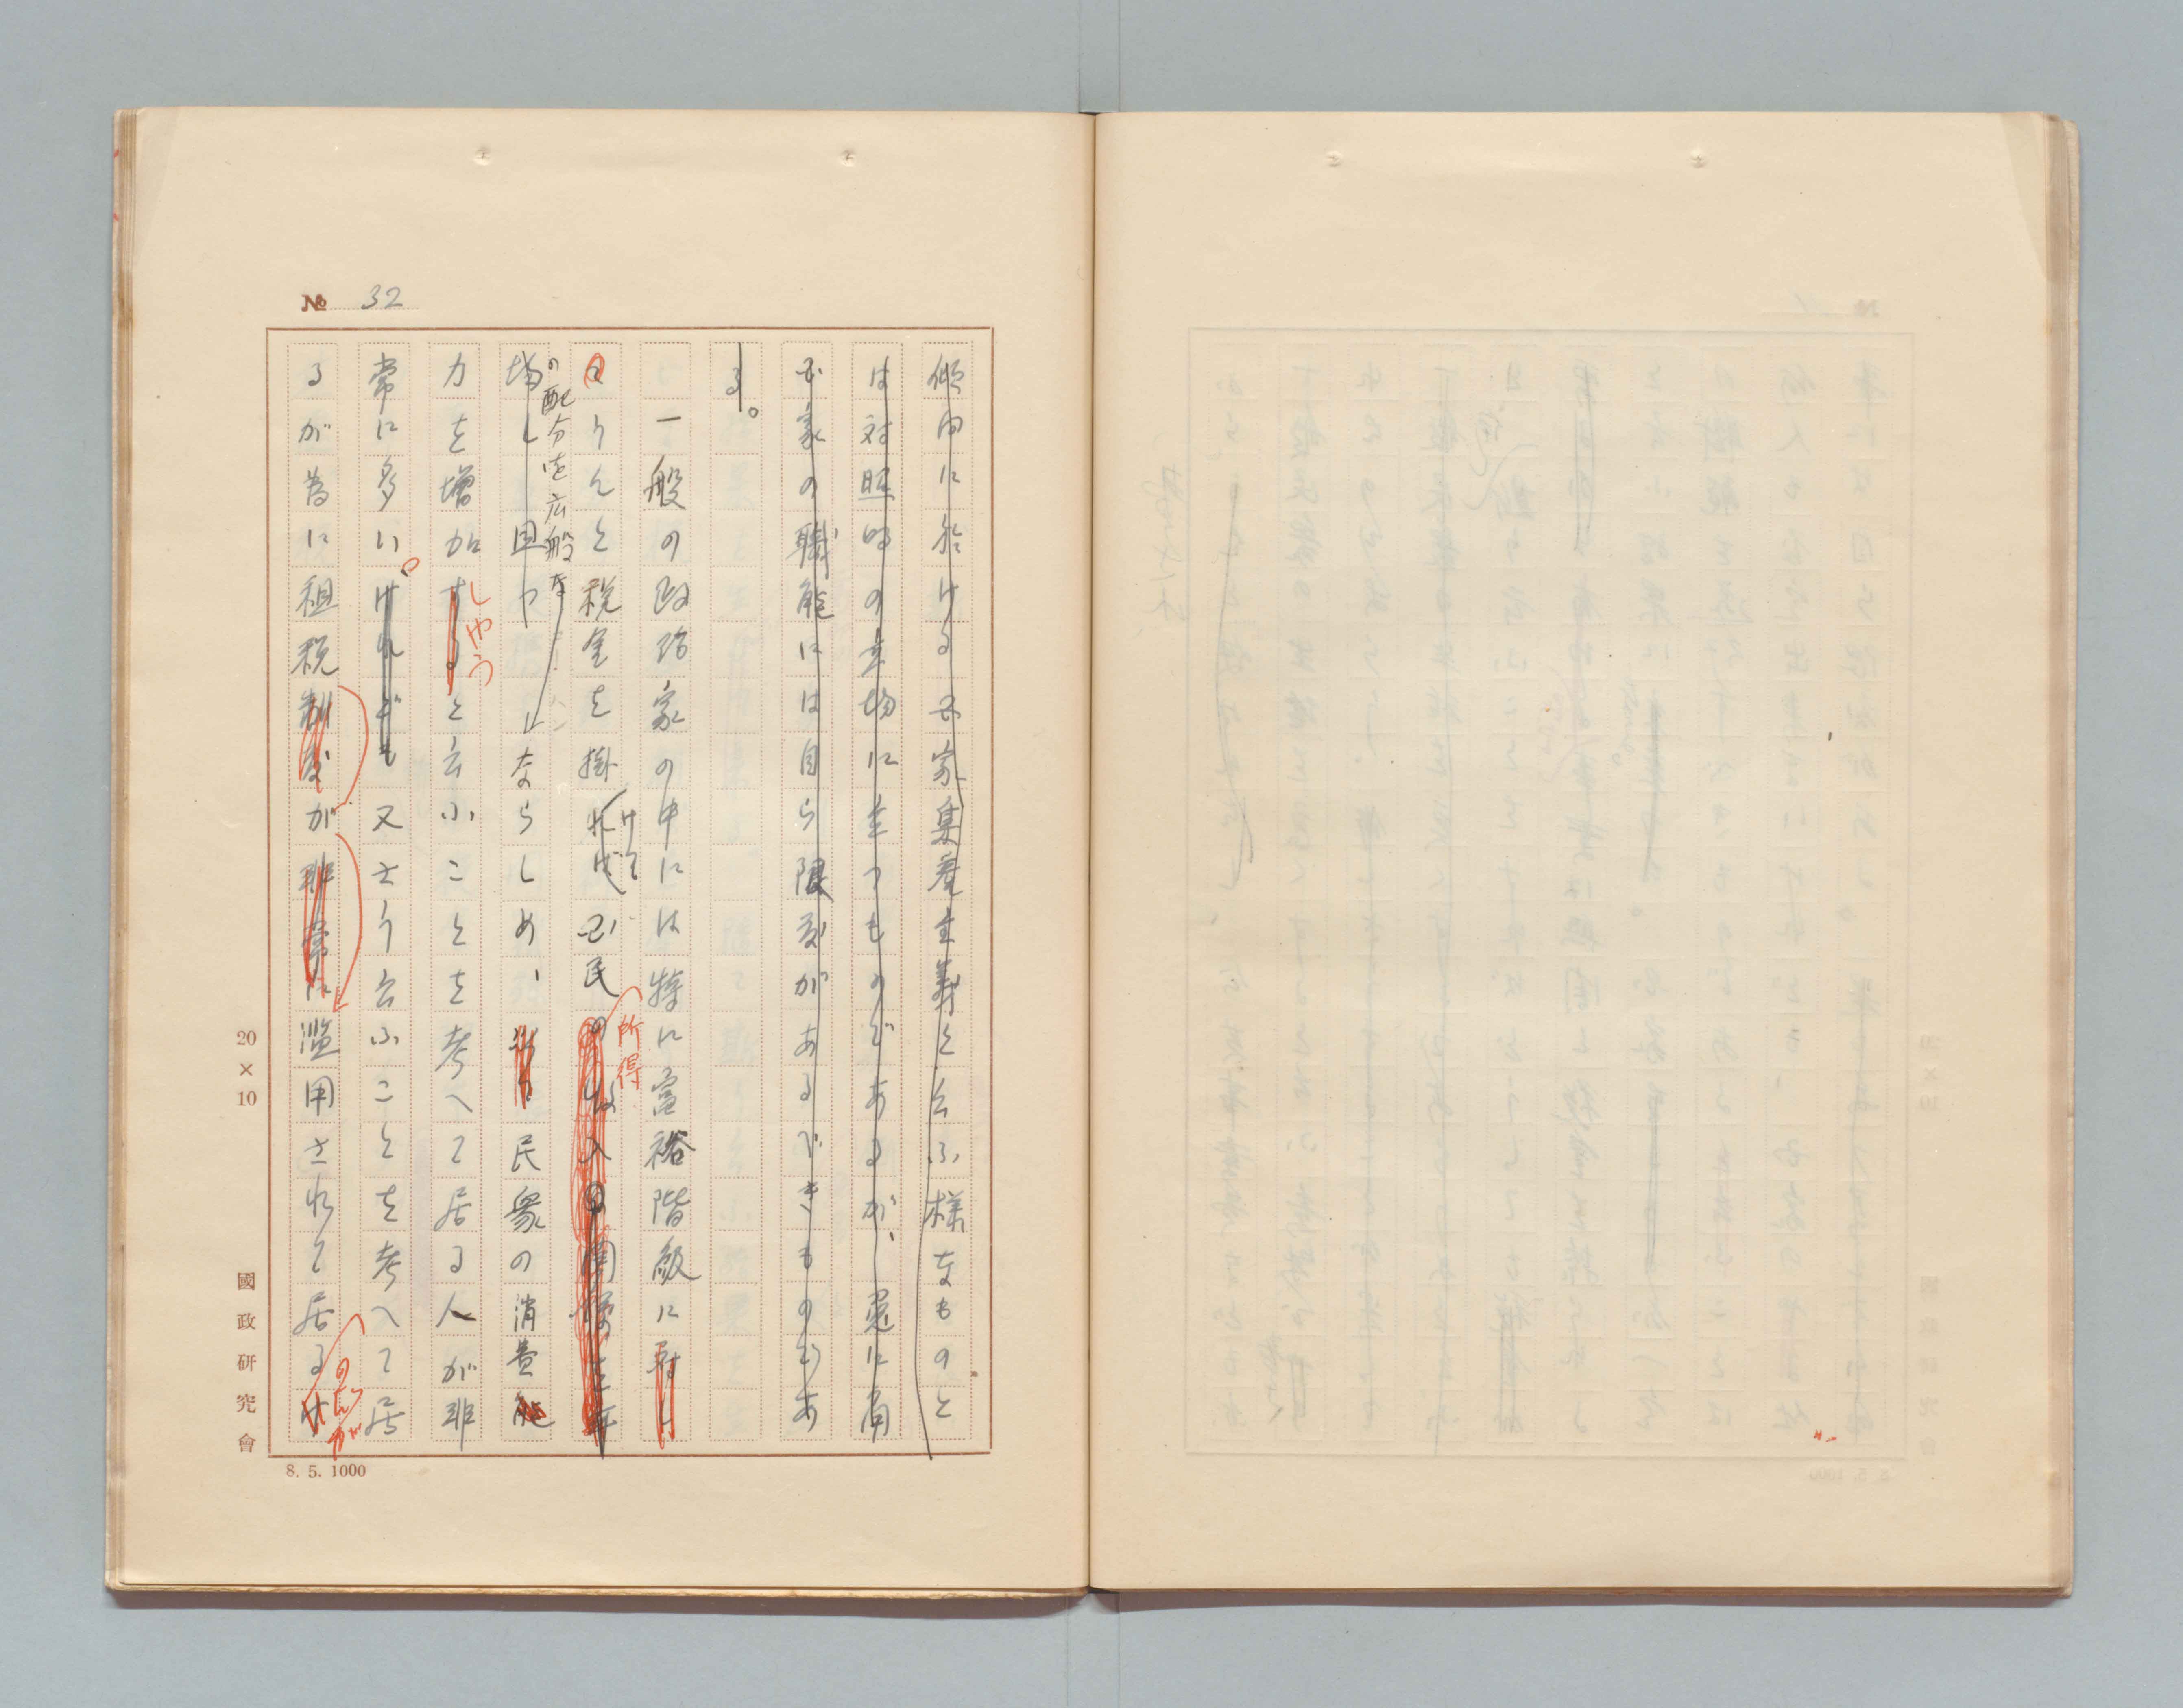 № 32
傾向に於ける国家集産主義と云ふ様なものと
は対照的の立場に立つものであるが、兎に角
国家の職能には自ら限度があるべきものであ
る。
一般の政治家の中には特に富裕階級に対し
てうんと税金を掛ればけて国民の収入の所得
の配分を広般な
場し且つならしめ、以て民衆の消費能
力を増加するしやうと云ふことを考へて居る人が非
常に多い。けれども又さう云ふことを考へて居
るが為に租税制度が非常に濫用されて居るのだが
20×10
國政研究會
8. 5. 1000